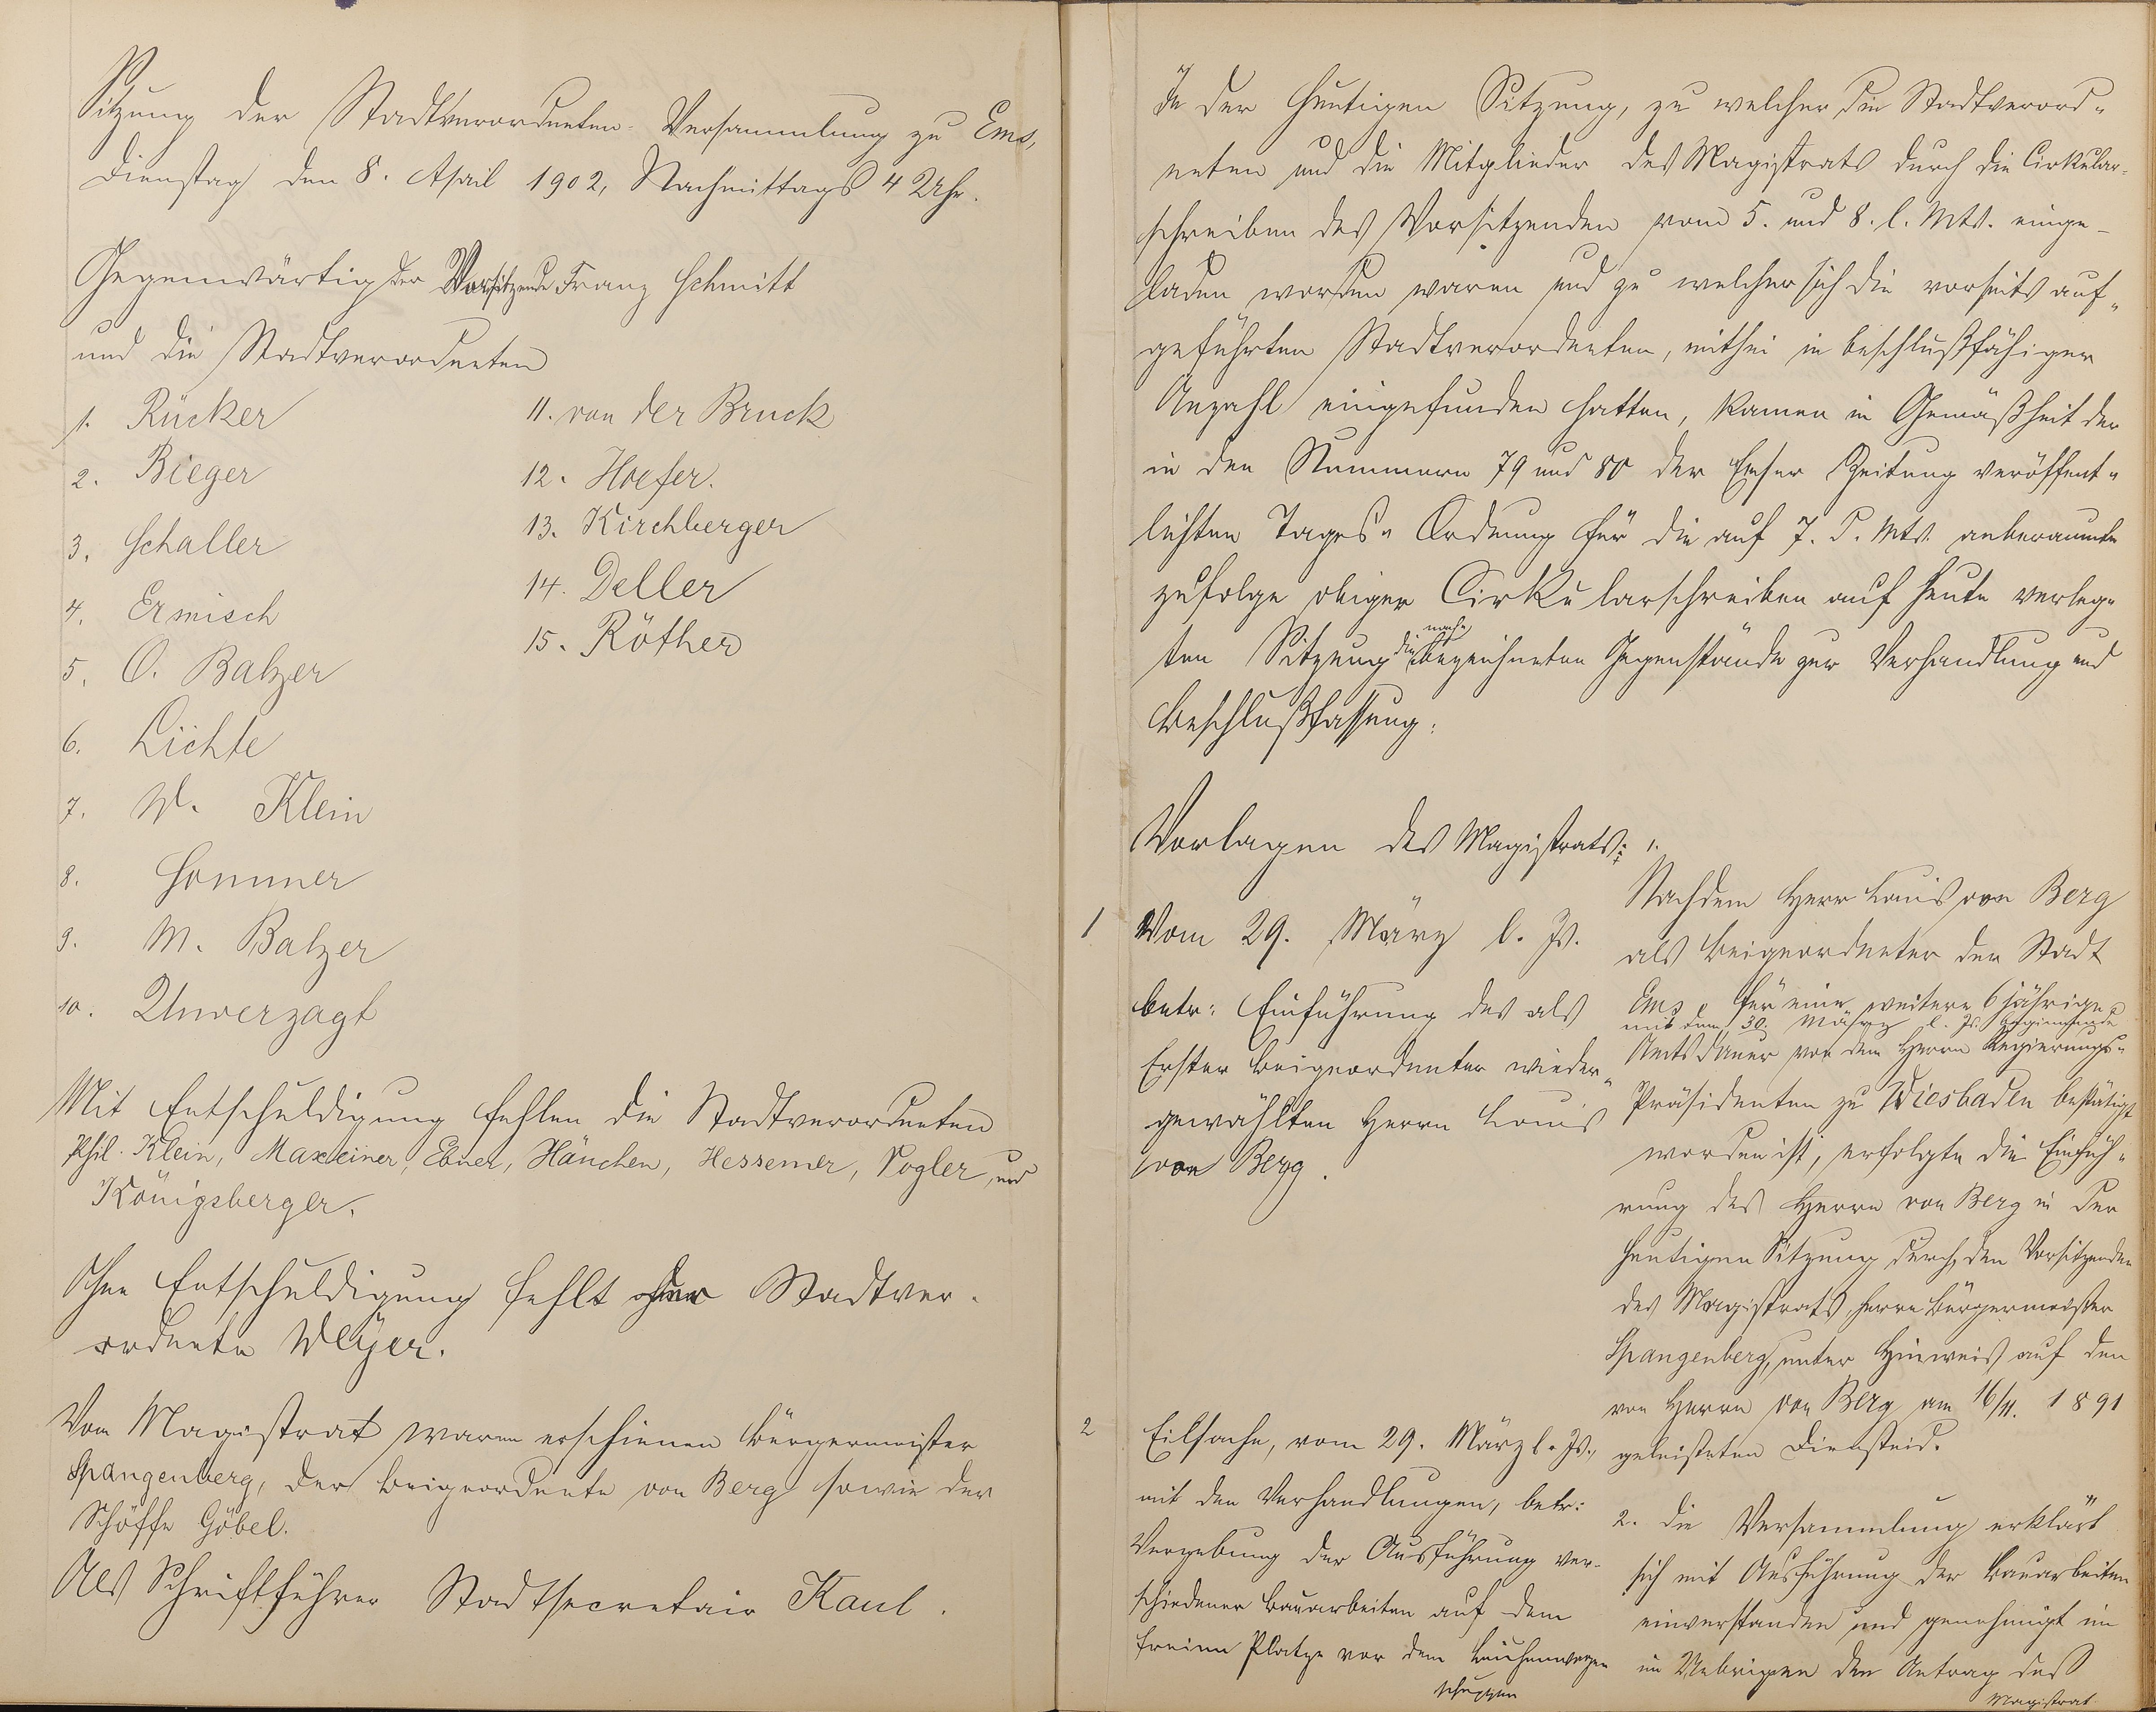 Sitzung der Stadtverordneten-Versammlung zu Ems,
Dienstag den 8. April 1902, Nachmittags 4 Uhr.
Gegenwärtig der Vorsitzende Franz Schmitt
und die Stadtverordneten
1. Rücker
2. Bieger
3. Schaller
4. Ermisch
5. O. Balzer
6. Lichte
7. W. Klein
8. Sommer
9. M. Balzer
10. Unverzagt
11. von der Bruck
12. Hoefer.
13. Kirchberger
14. Deller
15. Röther
Mit Entschuldigung fehlen die Stadtverordneten
Phil. Klein, Maxeiner, Ebner, Hänchen, Hessemer, Vogler, und
Königsberger.
Ohne Entschuldigung fehlt der Stadtver-
ordnete Weyer.
Vom Magistrat waren erschienen Bürgermeister
Spangenberg, der Beigeordnete von Berg sowie der
Schöffe Göbel.
Als Schriftführer Stadtsecretair Kaul.
In der heutigen Sitzung, zu welcher die Stadtverord-
neten und die Mitglieder des Magistrats durch die Cirkular-
schreiben des Vorsitzenden vom 5. und 8. l. Mts. einge-
laden worden waren und zu welcher sich die vorseits auf-
geführten Stadtverordneten, mithin in beschlußfähiger
Anzahl eingefunden hatten, kamen in Gemäßheit der
in den Nummern 79 und 80 der Emser Zeitung veröffent-
lichten Tages-Ordnung für die auf 7. d. Mts. anberaumte
zufolge obiger Cirkularschreiben auf heute verleg-
ten Sitzung die nachbezeichneten Gegenstände zur Verhandlung und
Beschlußfassung:
Vorlagen des Magistrats:
1 Vom 29. März l. Js.
betr: Einführung des als
Erster Beigeordneter wieder-
gewählten Herrn Louis
von Berg.
1.
Nachdem Herr Louis von Berg
als Beigeordneter der Stadt
Ems für eine weitere 6 jährige
mit dem 30. März l. Js. beginnende
Amtsdauer von dem Herrn Regierungs-
Präsidenten zu Wiesbaden bestätigt
worden ist, erfolgte die Einfüh-
rung des Herrn von Berg in der
heutigen Sitzung durch den Vorsitzenden
des Magistrats, Herrn Bürgermeister
Spangenberg, unter Hinweis auf den
von Herrn von Berg am 16/11. 1891
geleisteten Diensteid.
2 Eilsache, vom 29. März l. Js.,
mit den Verhandlungen, betr:
Vergebung der Ausführung ver-
schiedener Bauarbeiten auf dem
freien Platze vor dem Leichenwagen
schuppen
2. Die Versammlung erklärt
sich mit Ausführung der Bauarbeiten
einverstanden und genehmigt im
im Uebrigen den Antrag des
Magistrat